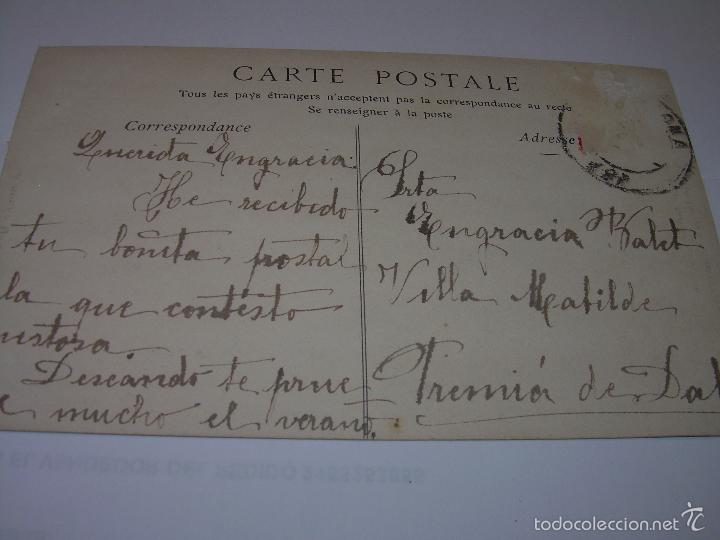 CARTE POSTALE
Tous les pays étrangers n'acceptent pas la correspondance au recto
Se renseigner à la poste
Correspondance
Adresse
Querida Engracia:
He recibido
tu bonita postal
la que contésto
ustosa
Deseando te prue
e mucho el verano.
Srta
Engracia
Villa Matilde
Premiá de Dal
EL VENDEDOR DEL PEDIDO
todocoleccion.net